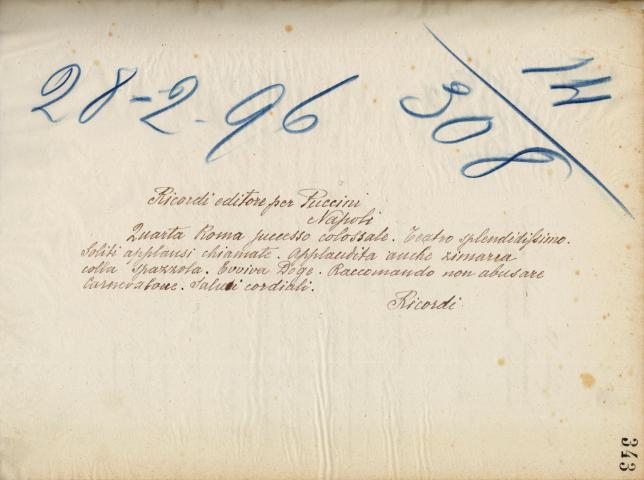 28-2-96
308
Ricordi editore per Puccini
Napoli
Quarta Roma successo colossale. Teatro splendidissimo.
Soliti applausi chiamate. Applaudita anche zimarra
colla spazzola. Evviva Doge. Raccomando non abusare
Carnevalone. Saluti cordiali.
Ricordi
343